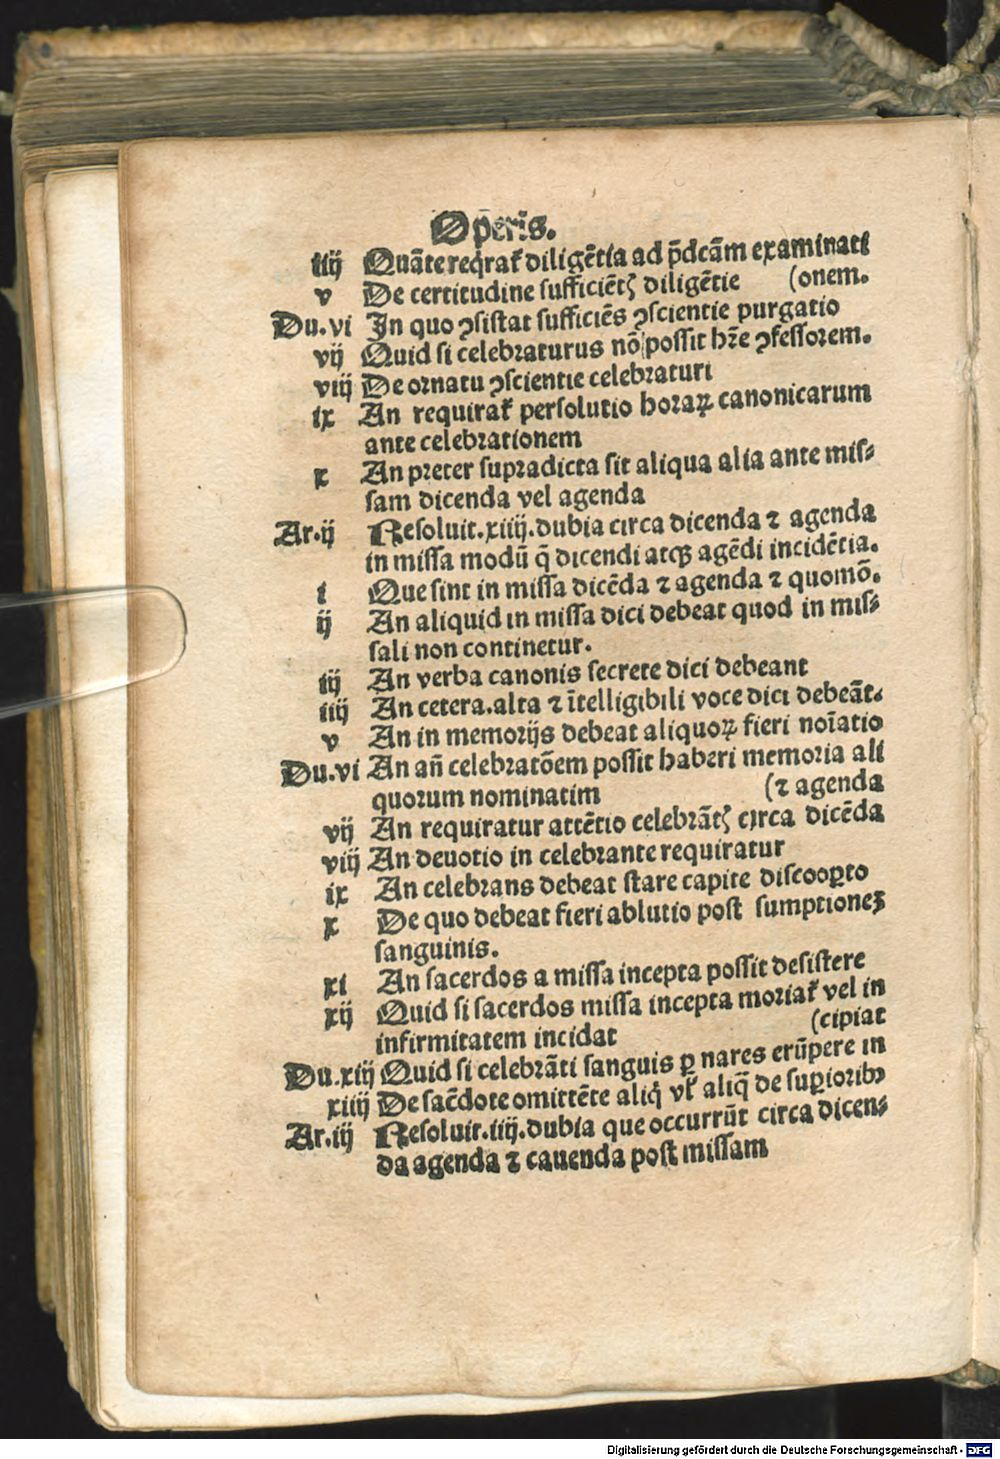 Oꝑis.
iiij Quāte reqͥraꝭ diligētia ad p̄dcām examinati
v De certitudine sufficiētꝭ diligētie (onem.
Du.vi In quo ꝯsistat sufficiēs ꝯscientie purgatio
vij Quid si celebraturus nō possit hr̄e ꝯfessorem.
viij De ornatu ꝯscientie celebraturi
ix An requiraꝭ persolutio horaꝝ canonicarum
ante celebrationem
x An preter supradicta sit aliqua alia ante mis⸗
sam dicenda vel agenda
Ar.ij Resoluit.xiiij.dubia circa dicenda ⁊ agenda
in missa modū q̄ dicendi atqꝫ agēdi incidētia.
i Que sint in missa dicēda ⁊ agenda ⁊ quomō.
ij An aliquid in missa dici debeat quod in mis⸗
sali non continetur.
iij An verba canonis secrete dici debeant
iiij An cetera.alta ⁊ ītelligibili voce dici debeāt.
v An in memorijs debeat aliquoꝝ fieri noīatio
Du.vi An añ celebratōem possit haberi memoria ali
quorum nominatim (⁊ agenda
vij An requiratur attētio celebrātꝭ circa dicēda
viij An deuotio in celebrante requiratur
ix An celebrans debeat stare capite discooꝑto
x De quo debeat fieri ablutio post sumptioneꝫ
sanguinis.
xi An sacerdos a missa incepta possit desistere
xij Quid si sacerdos missa incepta moriaꝭ vel in
infirmitatem incidat (cipiat
Du.xiij Quid si celebrāti sanguis ꝑ nares erūpere in
xiiij De sac̄dote omittēte aliqͥ vꝉ aliq̄ de suꝑioribꝰ
Ar.iij Resoluit.iiij.dubia que occurrūt circa dicen⸗
da agenda ⁊ cauenda post missam
Digitalisierung gefördert durch die Deutsche Forschungsgemeinschaft - DFG